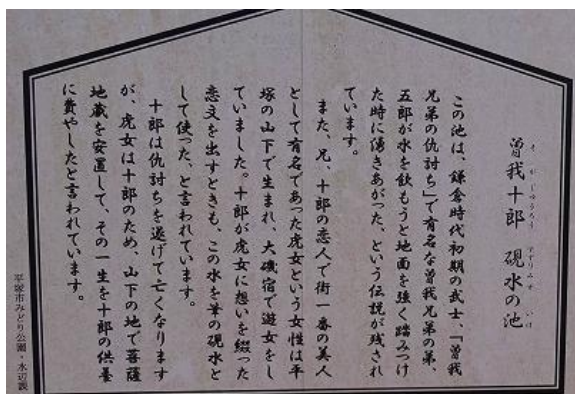 曽我十郎 硯水の池
そがじゅうろう すずりみず いけ
この池は、鎌倉時代初期の武士、「曽我
兄弟の仇討ち」で有名な曽我兄弟の弟、
五郎が水を飲もうと地面を強く踏みつけ
た時に湧きあがった、という伝説が残され
ています。
また、兄、十郎の恋人で街一番の美人
として有名であった虎女という女性は平
塚の山下で生まれ、大磯宿で遊女をし
ていました。十郎が虎女に想いを綴った
恋文を出すときも、この水を筆の硯水と
して使った、と言われています。
十郎は仇討ちを遂げて亡くなります
が、虎女は十郎のため、山下の地で菩薩
地蔵を安置して、その一生を十郎の供養
に費やしたと言われています。
平塚市みどり公園・水辺課